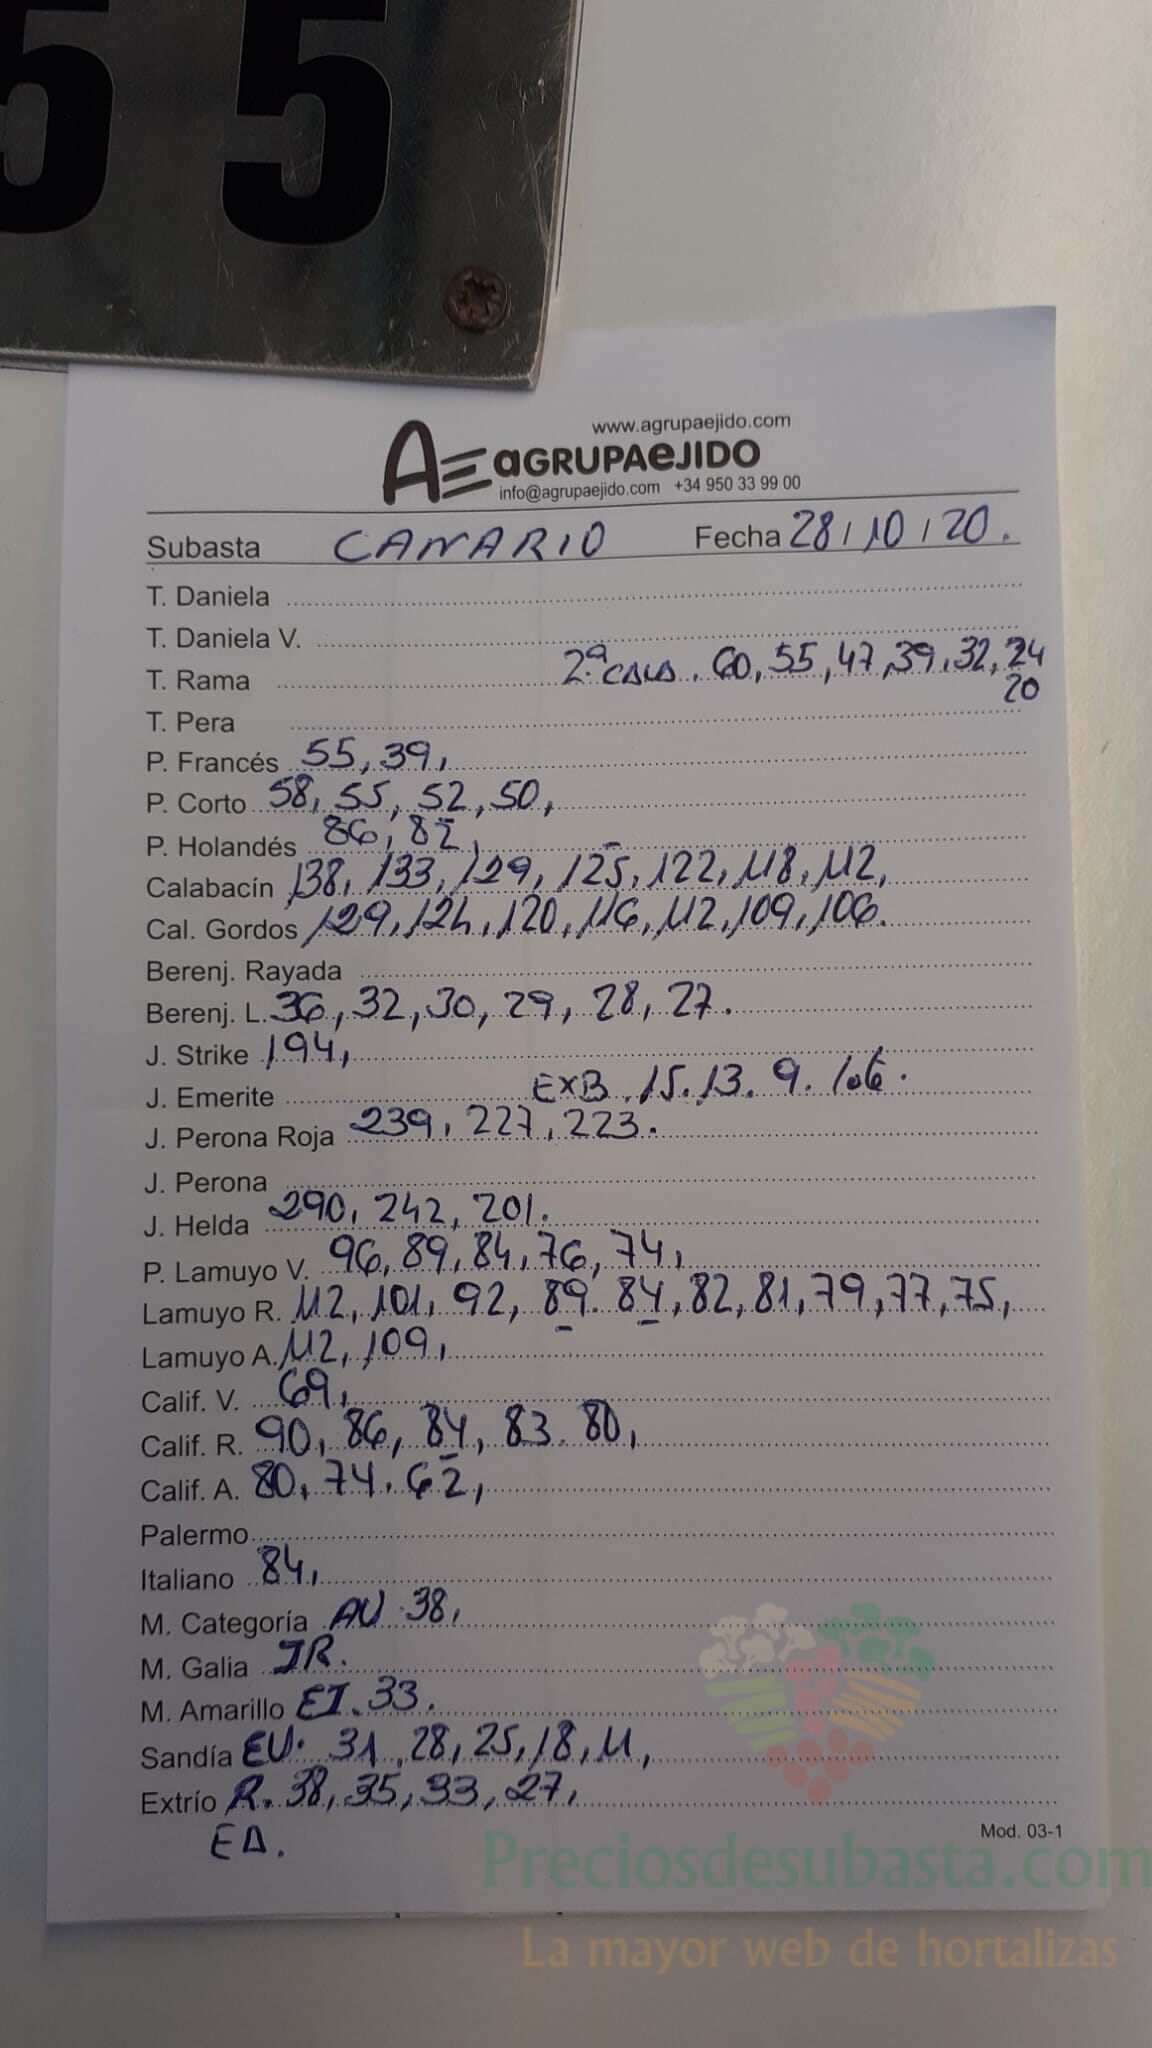 55
www.agrupaejido.com
AE aGRUPAeJIDO
info@agrupaejido.com +34 950 33 99 00
Subasta CANARIO Fecha 28/10/20.
T. Daniela
T. Daniela V.
T. Rama 2ª CALA. 60, 55, 47, 39, 32, 24
20
T. Pera
P. Francés 55, 39,
P. Corto 58, 55, 52, 50,
P. Holandés 86, 82,
Calabacín 138, 133, 129, 125, 122, 118, 112,
Cal. Gordos 129, 124, 120, 116, 112, 109, 106.
Berenj. Rayada
Berenj. L. 36, 32, 30, 29, 28, 27.
J. Strike 194,
J. Emerite EXB. 15. 13. 9.
J. Perona Roja 239, 227, 223.
J. Perona
J. Helda 290, 242, 201.
P. Lamuyo V. 96, 89, 84, 76, 74,
Lamuyo R. 112, 101, 92, 89. 84, 82, 81, 79, 77, 75,
Lamuyo A. 112, 109,
Calif. V. 69,
Calif. R. 90, 86, 84, 83. 80,
Calif. A. 80, 74. 62,
Palermo
Italiano 84,
M. Categoría AV. 38,
M. Galia JR.
M. Amarillo EI. 33.
Sandía EV. 31, 28, 25, 18, 11,
Extrío R. 38, 35, 33, 27,
EA.
Mod. 03-1
Preciosdesubasta.com
La mayor web de hortalizas